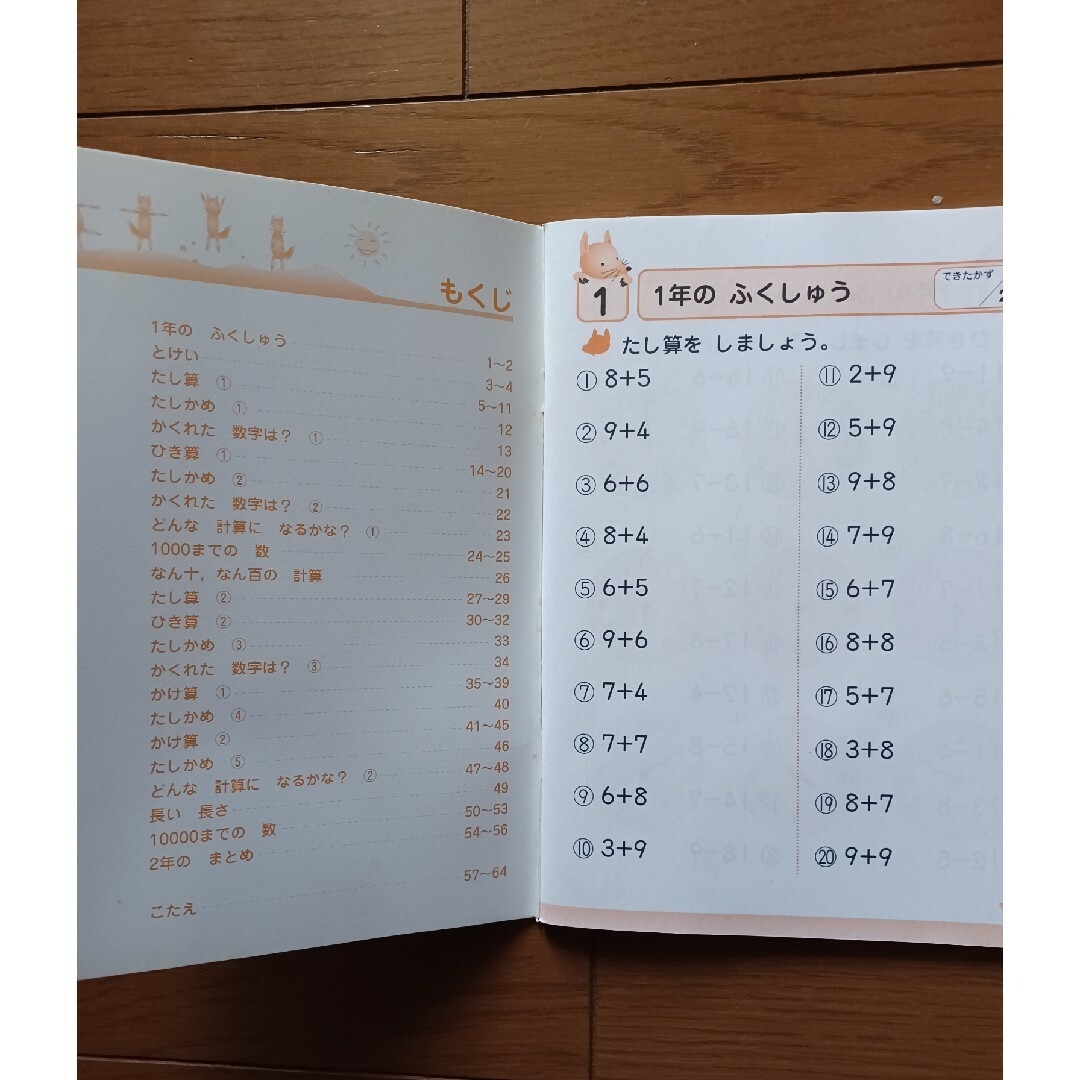 もくじ
1年の ふくしゅう 1~2
とけい 3~4
たし算 ① 5~11
たしかめ ① 12
かくれた 数字は? ① 13
ひき算 ① 14~20
たしかめ ② 21
かくれた 数字は? ② 22
どんな 計算に なるかな? ① 23
1000までの 数 24~25
なん十,なん百の 計算 26
たし算 ② 27~29
ひき算 ② 30~32
たしかめ ③ 33
かくれた 数字は? ③ 34
かけ算 ① 35~39
たしかめ ④ 40
かけ算 ② 41~45
たしかめ ⑤ 46
どんな 計算に なるかな? ② 47~48
長い 長さ 49
10000までの 数 50~53
2年の まとめ 54~56
こたえ 57~64
1 1年の ふくしゅう
できたかず
たし算を しましょう。
① 8+5
② 9+4
③ 6+6
④ 8+4
⑤ 6+5
⑥ 9+6
⑦ 7+4
⑧ 7+7
⑨ 6+8
⑩ 3+9
⑪ 2+9
⑫ 5+9
⑬ 9+8
⑭ 7+9
⑮ 6+7
⑯ 8+8
⑰ 5+7
⑱ 3+8
⑲ 8+7
⑳ 9+9